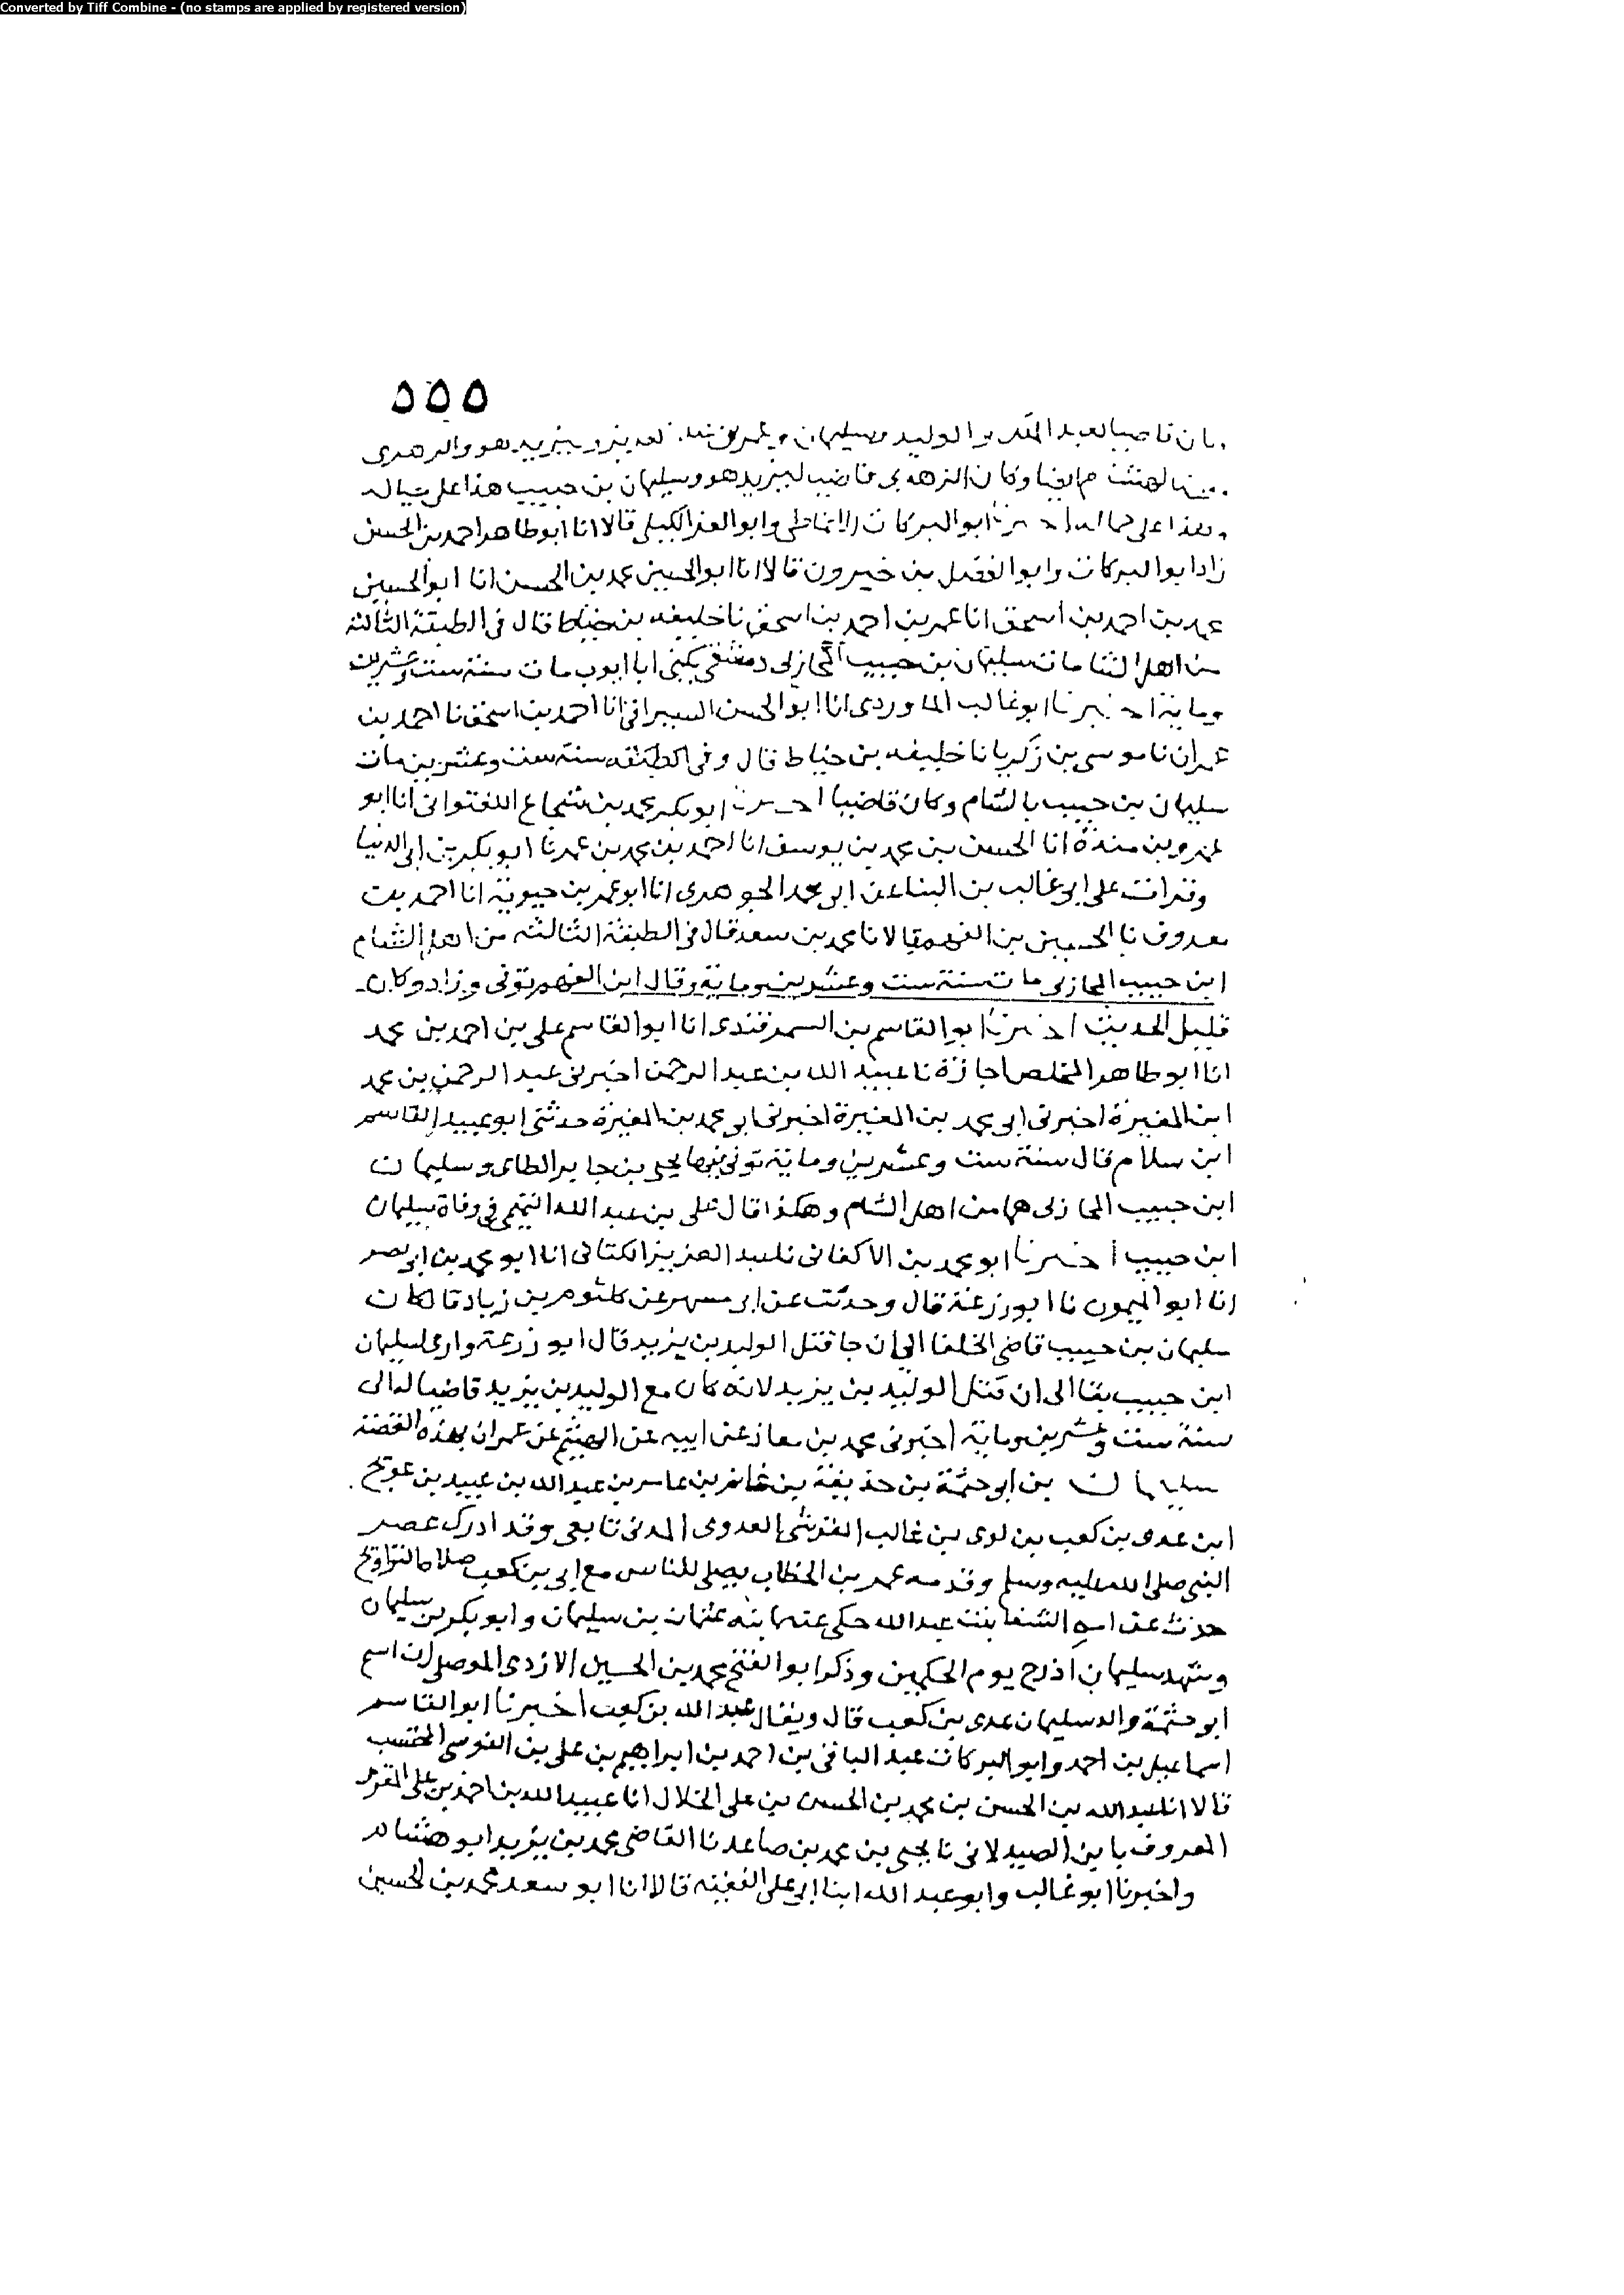 Converted by Tiff Combine - (no stamps are applied by registered version)
٥٥٥
قاضيا لعبد الملك والوليد وسليمان هو والزهرى
لهشام ايضا وكان الزهرى قاضيا ليزيد هو وسليمان بن حبيب هذا على حياله
وهذا على حياله اخبرنا ابو البركات الانماطى وابو العز الكيلى قالا انا ابو طاهر احمد بن الحسن
زاد ابو البركات وابو الفضل بن خيرون قالا انا ابو الحسين محمد بن الحسن انا ابو الحسين
محمد بن احمد بن اسحق انا عمر بن احمد بن اسحق نا خليفه بن خياط قال فى الطبقة الثالثه
من اهل الشامات سليمان بن حبيب المحازلى دمشقى يكنى ابا ايوب مات سنة ست وعشرين
وماية اخبرنا ابو غالب الماوردى انا ابو الحسن السيرافى انا احمد بن اسحق نا احمد بن
عمران نا موسى بن زكريا نا خليفه بن خياط قال وفى سنة ست وعشرين مات
سليمان بن حبيب بالشام وكان قاضيا اخبرنا ابو بكر محمد بن شجاع اللفتوانى انا ابو
عمرو بن مندة انا الحسن بن محمد بن يوسف انا احمد بن محمد بن عمر نا ابو بكر بن ابى الدنيا
وقرات على ابى غالب بن البنا عن ابى محمد الجوهرى انا ابو عمر بن حيوية انا احمد بن
معروف نا الحسين بن الفهم قالا نا محمد بن سعد قال فى الطبقة الثالثه من اهل الشام
ابن حبيب المحازلى مات سنة ست وعشرين وماية وقال ابن الفهم توفى وزاد وكان
قليل الحديث اخبرنا ابو القاسم بن السمرقندى انا ابو القاسم على بن احمد بن محمد
انا ابو طاهر المخلص اجازة نا عبيد الله بن عبد الرحمن اخبرنى عبد الرحمن بن محمد
ابن المغيرة اخبرنى ابى محمد بن المغيرة اخبرنى ابى محمد بن المغيرة حدثنى ابو عبيد القاسم
ابن سلام قال سنة ست وعشرين وماية توفى فيها يحيى بن جابر الطاى وسليمان
ابن حبيب المحازلى هما من اهل الشام وهكذا قال على بن عبد الله التميمى فى وفاة سليمان
ابن حبيب اخبرنا ابو محمد بن الاكفانى نا عبد العزيز الكتانى انا ابو محمد بن ابى نصر
انا ابو الميمون نا ابو زرعة قال وحدثت عن ابى مسهر عن كلثوم بن زياد قال كان
سليمان بن حبيب قاضى الخلفا الى ان جا قتل الوليد بن يزيد قال ابو زرعة وارى سليمان
ابن حبيب بقا الى ان قتل الوليد بن يزيد لانه كان مع الوليد بن يزيد قاضيا له الى
سنة ست وعشرين وماية اخبرنى محمد بن معاذ عن ابيه عن الهيثم عن عمران بهذه القصة
سليمان بن ابى حثمة بن حذيفة بن غانم بن عامر بن عبد الله بن عبيد بن عويج
ابن عدى بن كعب بن لوى بن غالب القرشى العدوى المدنى تابعى وقد ادرك عصر
النبى صلى الله عليه وسلم وقدمه عمر بن الخطاب يصلى للناس مع ابى بن كعب صلاة التراويح
حدث عن امه الشفا بنت عبد الله حكى عنه ابنه عثمان بن سليمان وابو بكر بن سليمان
وشهد سليمان اذرح يوم الحكمين وذكر ابو الفتح محمد بن الحسين الازدى الموصلى ان اسم
ابو حثمة والد سليمان عدى بن كعب قال ويقال عبد الله بن كعب اخبرنا ابو القاسم
اسماعيل بن احمد وابو البركات عبد الباقى بن احمد بن ابراهيم بن على بن النرسى المحتسب
قالا انا عبد الله بن الحسن بن محمد بن الحسن بن على الخلال انا عبيد الله بن احمد بن على المقرى
المعروف بابن الصيدلانى نا يحيى بن محمد بن صاعد نا القاضى محمد بن يزيد ابو هشام
واخبرنا ابو غالب وابو عبد الله ابنا ابى على الفقيه قالا انا ابو سعد محمد بن الحسين